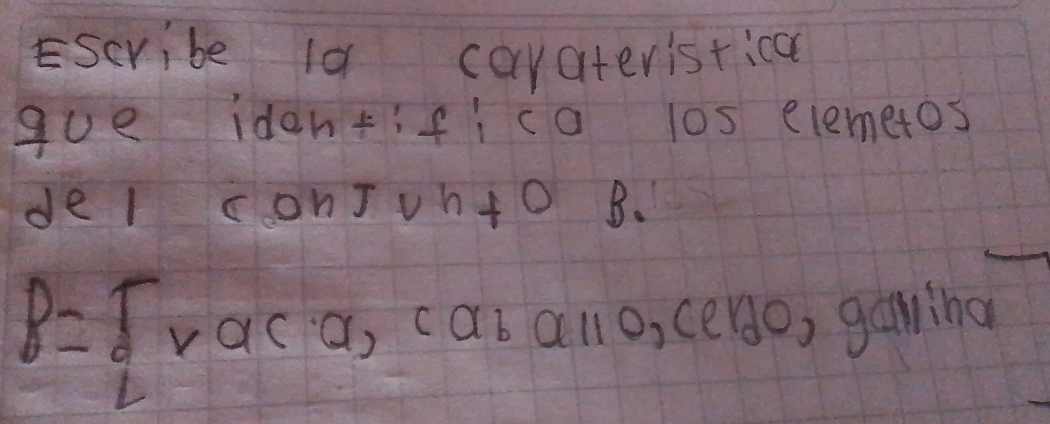 Escribe la carateristica
que idantifica los elemetos
del conjunto B.
B={vaca, caballo, cerdo, gallina}